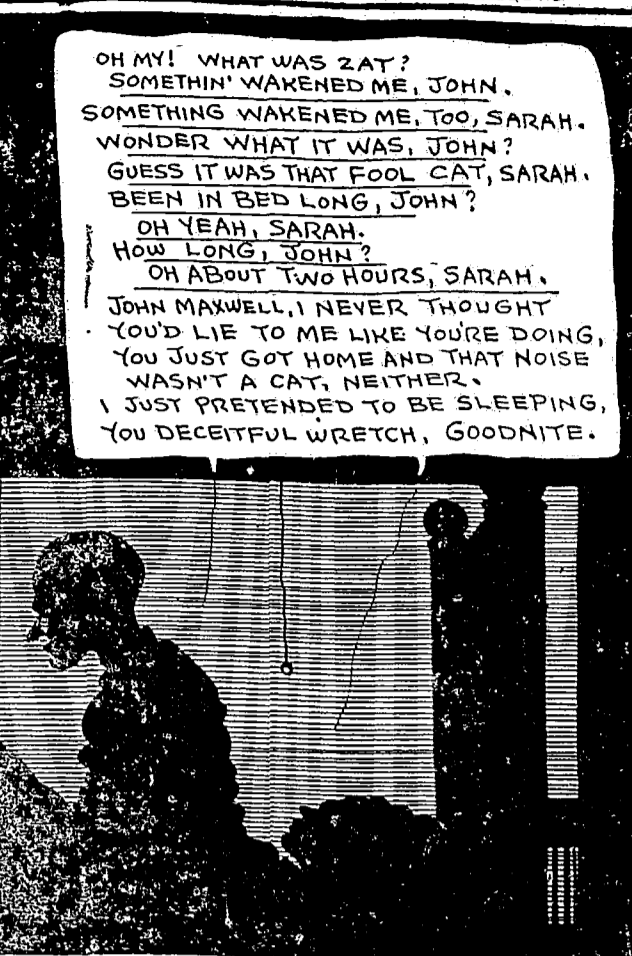 OH MY! WHAT WAS ZAT?
SOMETHIN' WAKENED ME, JOHN.
SOMETHING WAKENED ME, TOO, SARAH.
WONDER WHAT IT WAS, JOHN?
GUESS IT WAS THAT FOOL CAT, SARAH.
BEEN IN BED LONG, JOHN?
OH YEAH, SARAH.
HOW LONG, JOHN?
OH ABOUT TWO HOURS, SARAH.
JOHN MAXWELL, I NEVER THOUGHT
YOU'D LIE TO ME LIKE YOU'RE DOING,
YOU JUST GOT HOME AND THAT NOISE
WASN'T A CAT, NEITHER.
I JUST PRETENDED TO BE SLEEPING,
YOU DECEITFUL WRETCH, GOODNITE.